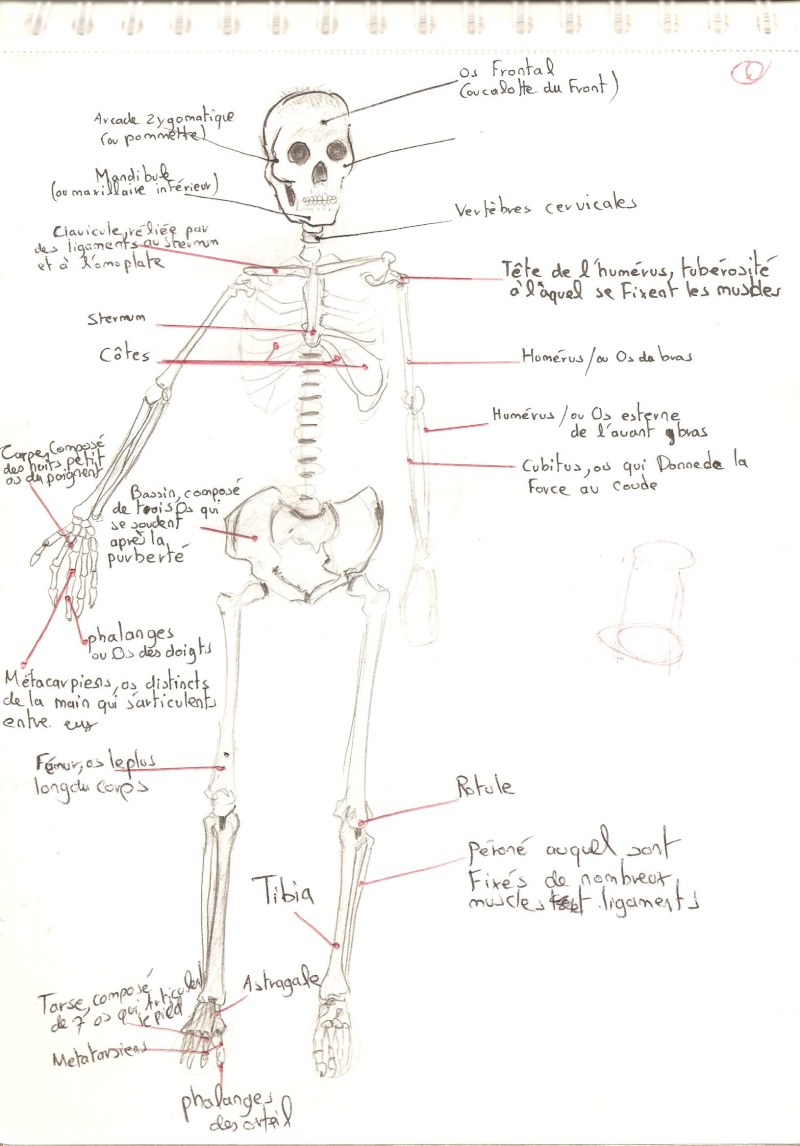 Os Frontal
(ou calotte du Front)
Arcade zygomatique
(ou pommette)
Mandibule
(ou maxillaire inférieur)
Vertèbres cervicales
Clavicule, réliée par
des ligaments au sternum
et à l'omoplate
Tête de l'humérus, tubérosité
à l'aquel se Fixent les muscles
Sternum
Côtes
Humérus/ou Os du bras
Humérus/ou Os esterne
de l'avant bras
Cubitus, os qui Donne de la
Force au coude
Carpe, Composé
des huits petit
os du poignent
Bassin, composé
de trois os qui
se soudent
après la
purberté
phalanges
ou Os des doigts
Métacarpiens, os distincts
de la main qui s'articulent
entre eux
Fémur, os le plus
long du corps
Rotule
péroné auquel sont
Fixés de nombreux
muscles et ligaments
Tibia
Astragale
Tarse, composé
de 7 os qui Articulent
le pied
Metatarsiens
phalanges
des orteil